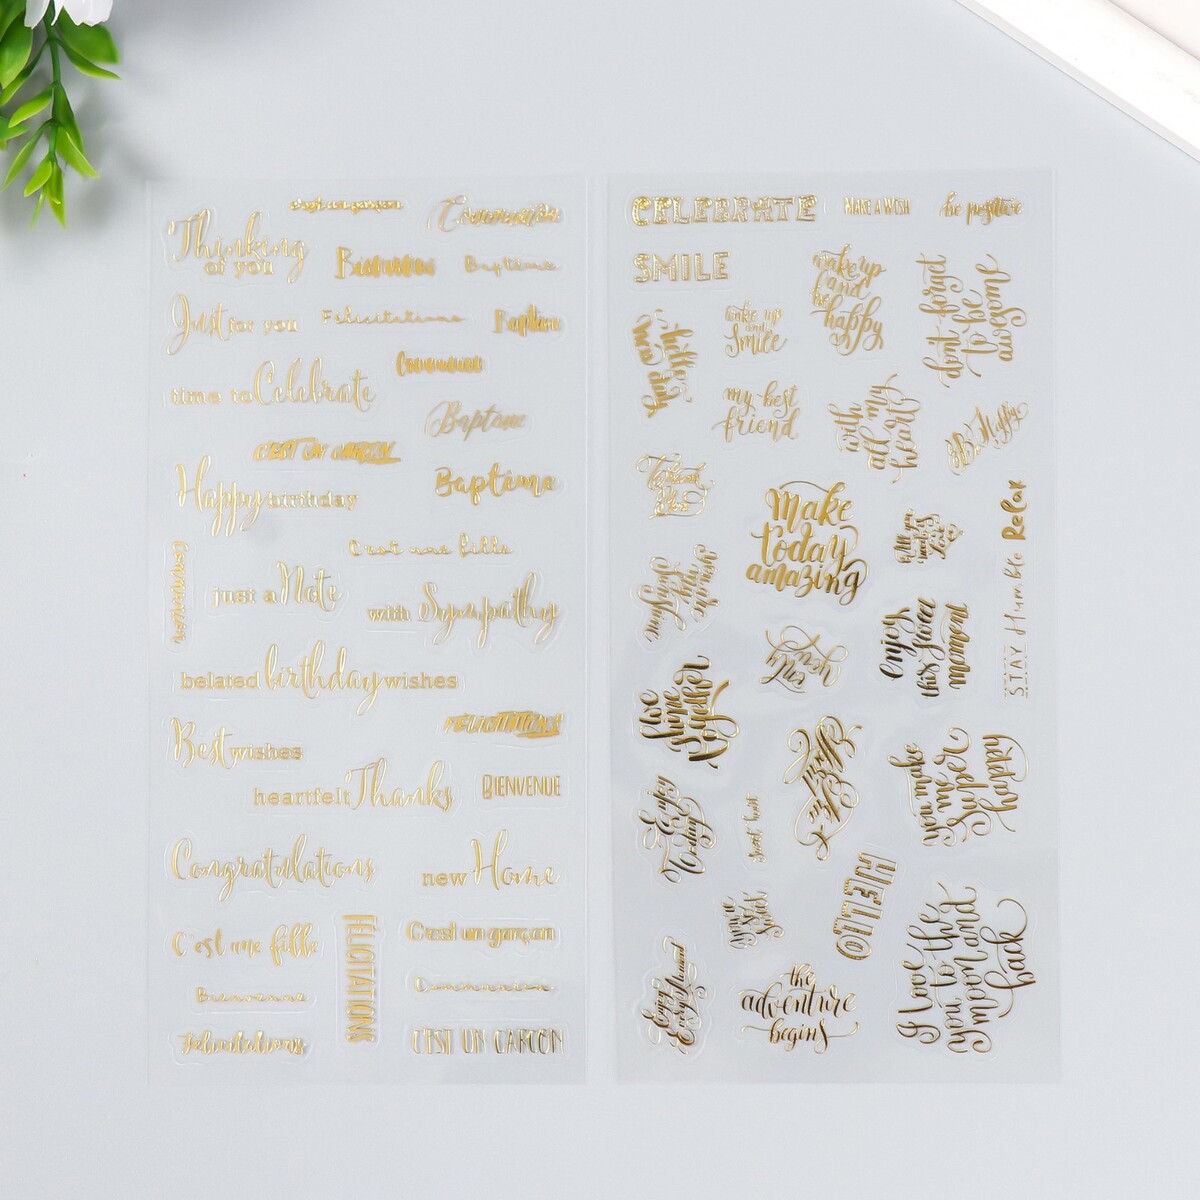 c'est un garçon
Communion
Thinking
of you
Bienvenue
Baptême
Just for you
Felicitations
Baptême
Communion
time to Celebrate
Baptême
C'EST UN GARÇON
Happy birthday
Baptême
C'est une fille
Communion
just a Note
with Sympathy
belated birthday wishes
FELICITATIONS
Best wishes
heartfelt Thanks
BIENVENUE
Congratulations
new Home
C'est une fille
FÉLICITATIONS
C'est un garçon
Bienvenue
Communion
Félicitations
C'EST UN GARÇON
CELEBRATE
MAKE A WISH
be positive
SMILE
wake up
and
be
happy
don't forget
to be
awesome
wake up
and
Smile
hello
my best
friend
with
all my
heart
Be Happy
Thank
You
Make
today
amazing
All you
need is
Love
Relax
STAY Humble
you are
my
Sunshine
enjoy
this sweet
moment
only
live
Together
Enjoy
Today
you make
me
super
happy
HELLO
Enjoy
Every Moment
the
adventure
begins
I love
you to the
moon and
back